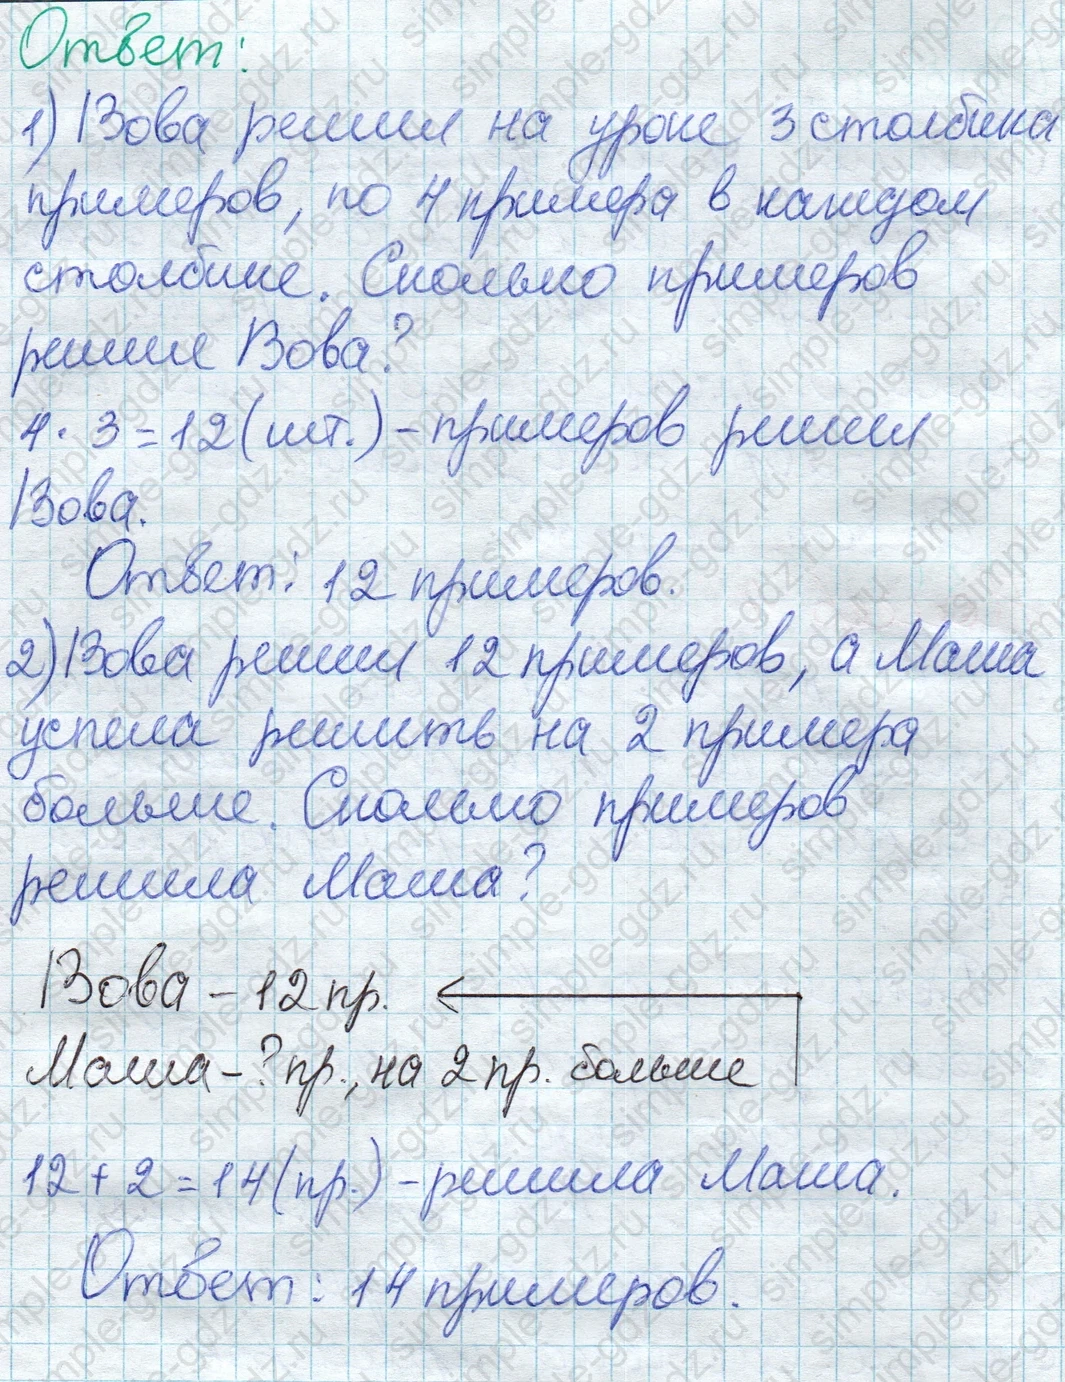 Ответ:
1) Вова решил на уроке 3 столбика
примеров, по 4 примера в каждом
столбике. Сколько примеров
решил Вова?
4 · 3 = 12 (шт.) – примеров решил
Вова.
Ответ: 12 примеров.
2) Вова решил 12 примеров, а Маша
успела решить на 2 примера
больше. Сколько примеров
решила Маша?
Вова – 12 пр.
Маша – ? пр., на 2 пр. больше
12 + 2 = 14 (пр.) – решила Маша.
Ответ: 14 примеров.
simple-gdz.ru